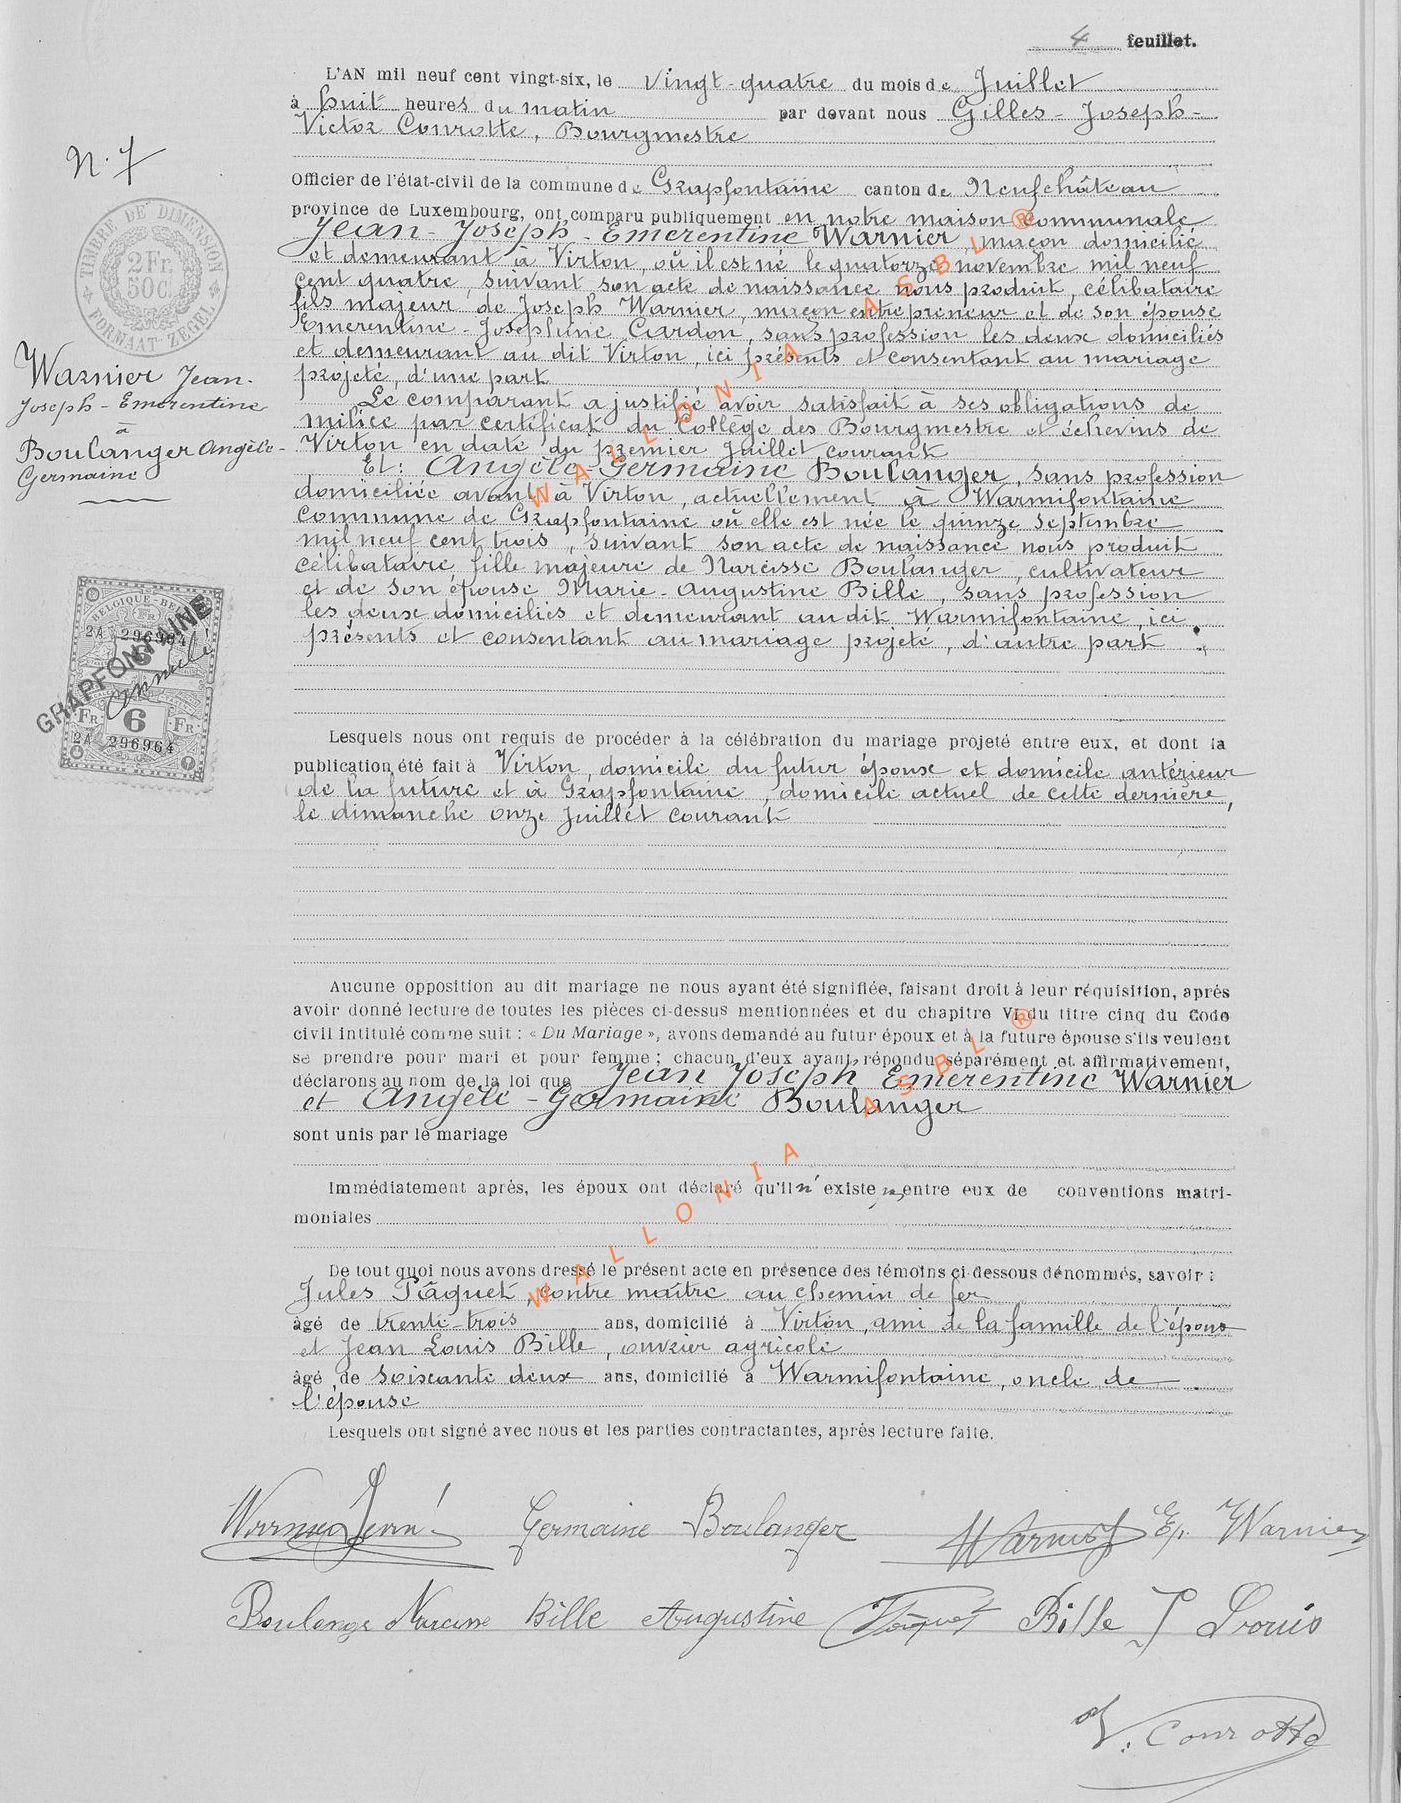 4 feuillet.
L'AN mil neuf cent vingt-six, le vingt-quatre du mois de Juillet
à huit heures du matin par devant nous Gilles-Joseph-
Victor Conrotte, Bourgmestre
N. 7
Officier de l'état-civil de la commune de Grapfontaine canton de Neufchâteau
province de Luxembourg, ont comparu publiquement en notre maison communale
Jean-Joseph-Emerentine Warnier, maçon domicilié
et demeurant à Virton, où il est né le quatorze novembre mil neuf
cent quatre, suivant son acte de naissance nous produit, célibataire
fils majeur de Joseph Warnier, maçon entrepreneur et de son épouse
Emerentine-Joséphine Cardon, sans profession les deux domiciliés
et demeurant au dit Virton, ici présents et consentant au mariage
projeté, d'une part
Le comparant a justifié avoir satisfait à ses obligations de
milice par certificat du Collège des Bourgmestre et échevins de
Virton en date du premier Juillet courant
Et: Angèle-Germaine Boulanger, sans profession
domiciliée avant à Virton, actuellement à Warmifontaine
commune de Grapfontaine où elle est née le quinze septembre
mil neuf cent trois, suivant son acte de naissance nous produit
célibataire fille majeure de Narcisse Boulanger, cultivateur
et de son épouse Marie-Augustine Bille, sans profession
les deux domiciliés et demeurant au dit Warmifontaine, ici
présents et consentant au mariage projeté, d'autre part.
TIMBRE DE DIMENSION
2 Fr.
50 C.
FORMAAT ZEGEL
Warnier Jean-
Joseph-Emerentine
à
Boulanger Angèle-
Germaine
BELGIQUE-BEL
2A 296964
GRAPFONTAINE
Annulé
FR. 6 FR.
2A 296964
Lesquels nous ont requis de procéder à la célébration du mariage projeté entre eux, et dont la
publication été fait à Virton, domicile du futur époux et domicile antérieur
de la future et à Grapfontaine, domicile actuel de cette dernière,
le dimanche onze Juillet courant
Aucune opposition au dit mariage ne nous ayant été signifiée, faisant droit à leur réquisition, après
avoir donné lecture de toutes les pièces ci-dessus mentionnées et du chapitre VI du titre cinq du Code
civil intitulé comme suit : « Du Mariage », avons demandé au futur époux et à la future épouse s'ils veulent
se prendre pour mari et pour femme ; chacun d'eux ayant répondu séparément et affirmativement,
déclarons au nom de la loi que Jean Joseph Emerentine Warnier
et Angèle-Germaine Boulanger
sont unis par le mariage
Immédiatement après, les époux ont déclaré qu'il n'existe pas entre eux de conventions matri-
moniales
De tout quoi nous avons dressé le présent acte en présence des témoins ci-dessous dénommés, savoir :
Jules Pâquet, contre maître au chemin de fer
âgé de trente-trois ans, domicilié à Virton, ami de la famille de l'époux
et Jean Louis Bille, ouvrier agricole
âgé de soixante deux ans, domicilié à Warmifontaine, oncle de
l'épouse
Lesquels ont signé avec nous et les parties contractantes, après lecture faite.
Warnier Jean Germaine Boulanger Warnier J Ep. Warnier
Boulanger Narcisse Bille Augustine Pâquet Bille J Louis
V. Conrotte
WALLONIA ASBL ®
WALLONIA ASBL ®